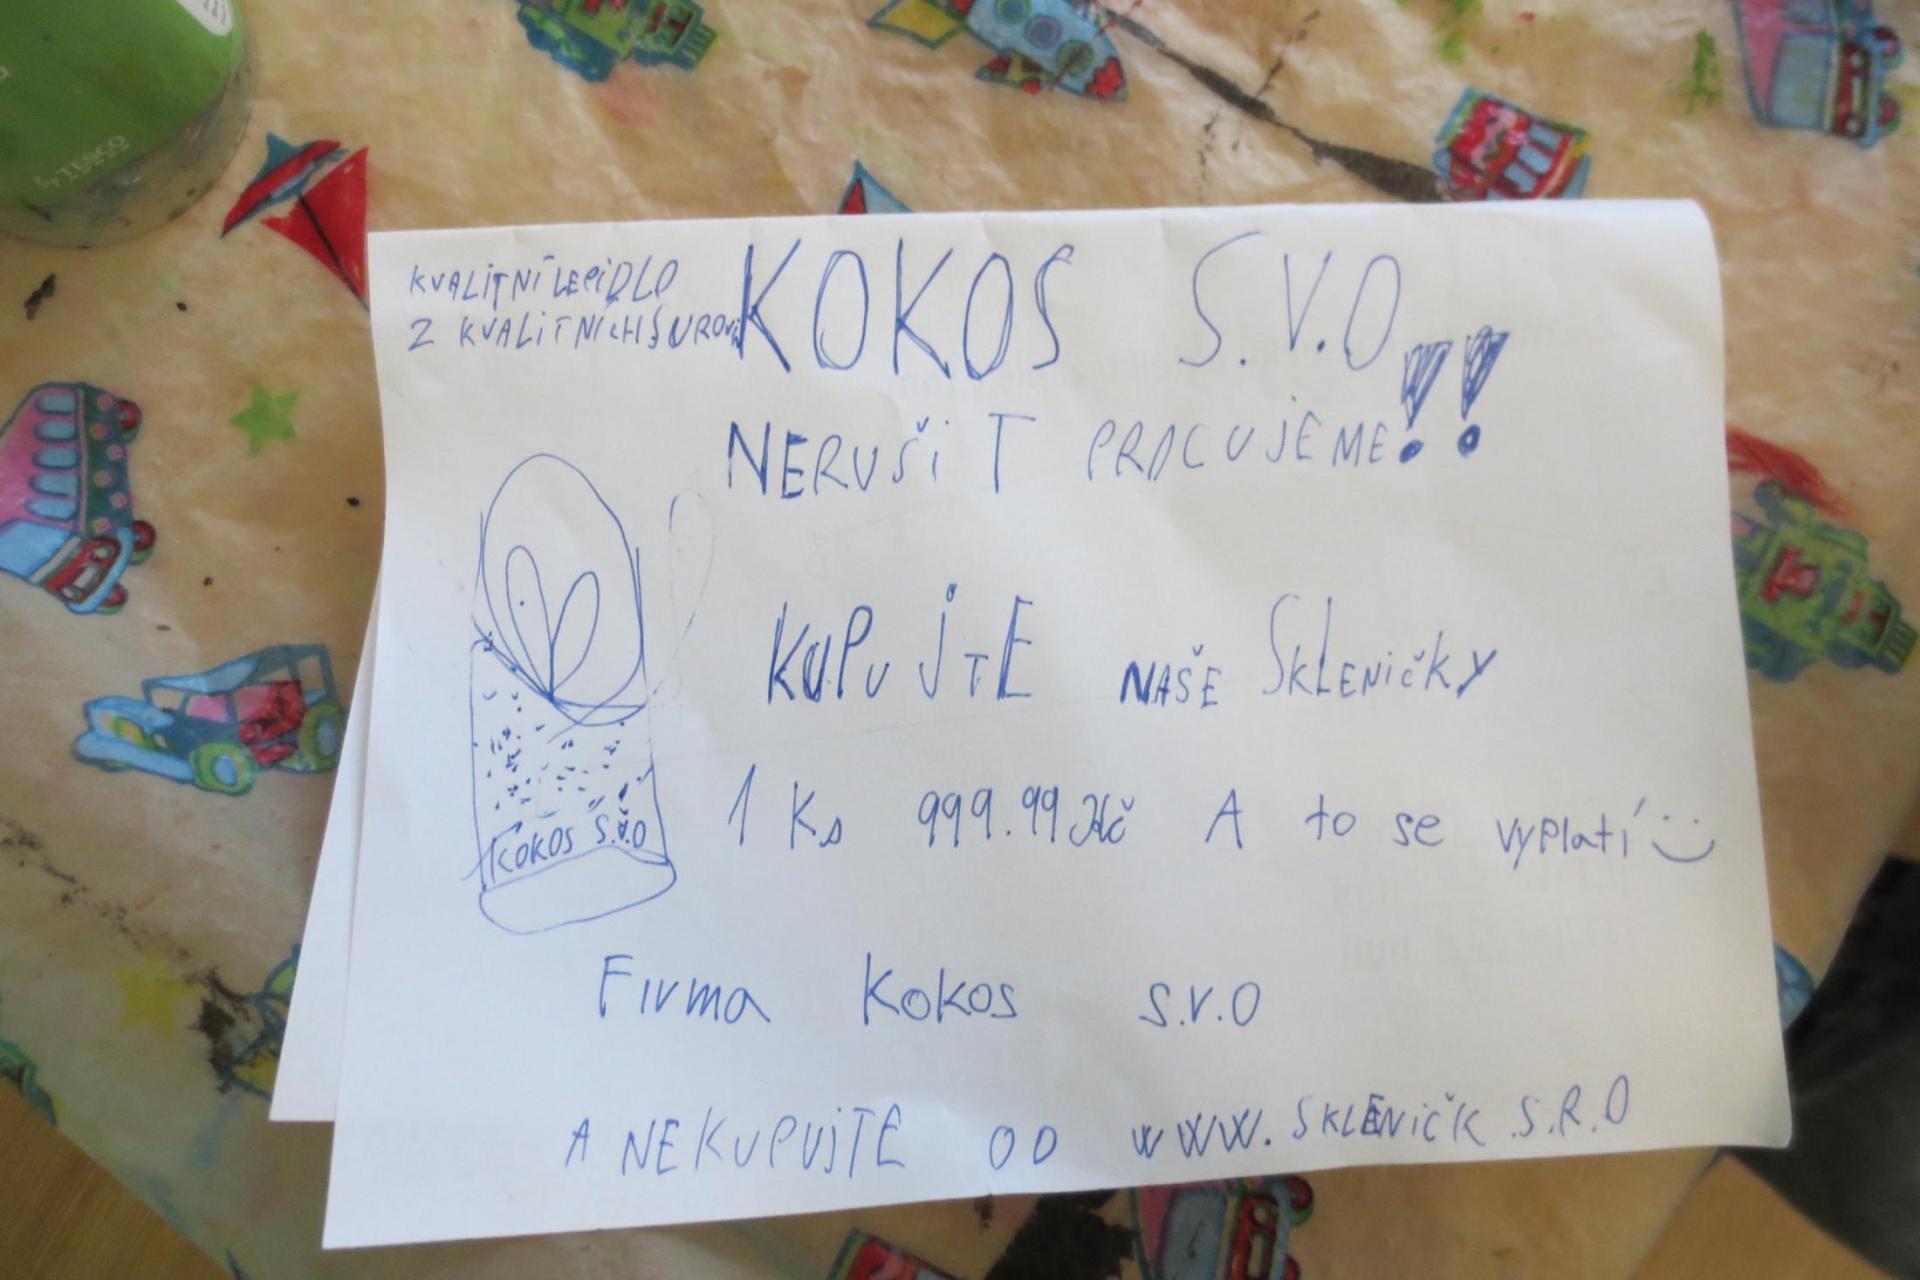 TESCO
KVALITNÍ LEPIDLO
Z KVALITNÍCH SUROVIN
KOKOS S.V.O
NERUŠIT PRACUJEME!!
KUPUJTE NAŠE SKLENIČKY
KOKOS S.V.O
1 Ks 999.99 Kč A to se vyplatí
Firma Kokos S.V.O
A NEKUPUJTE OD WWW.SKLENIČK.S.R.O